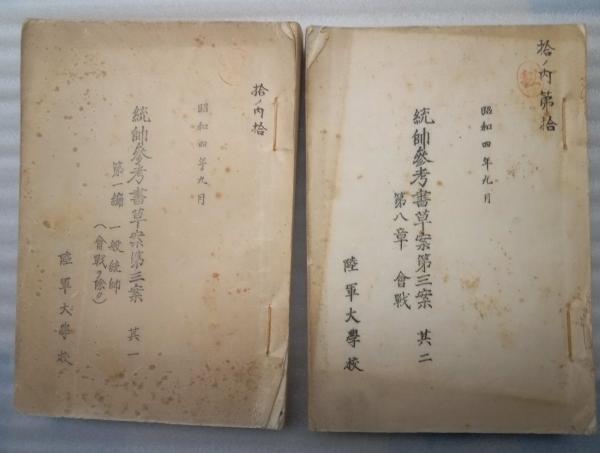 拾ノ内拾
昭和四年九月
統帥參考書草案第三案 其一
第一編 一般統帥
(會戰ヲ除ク)
陸軍大學校
拾ノ内第拾
昭和四年九月
統帥參考書草案第三案 其二
第八章 會戰
陸軍大學校